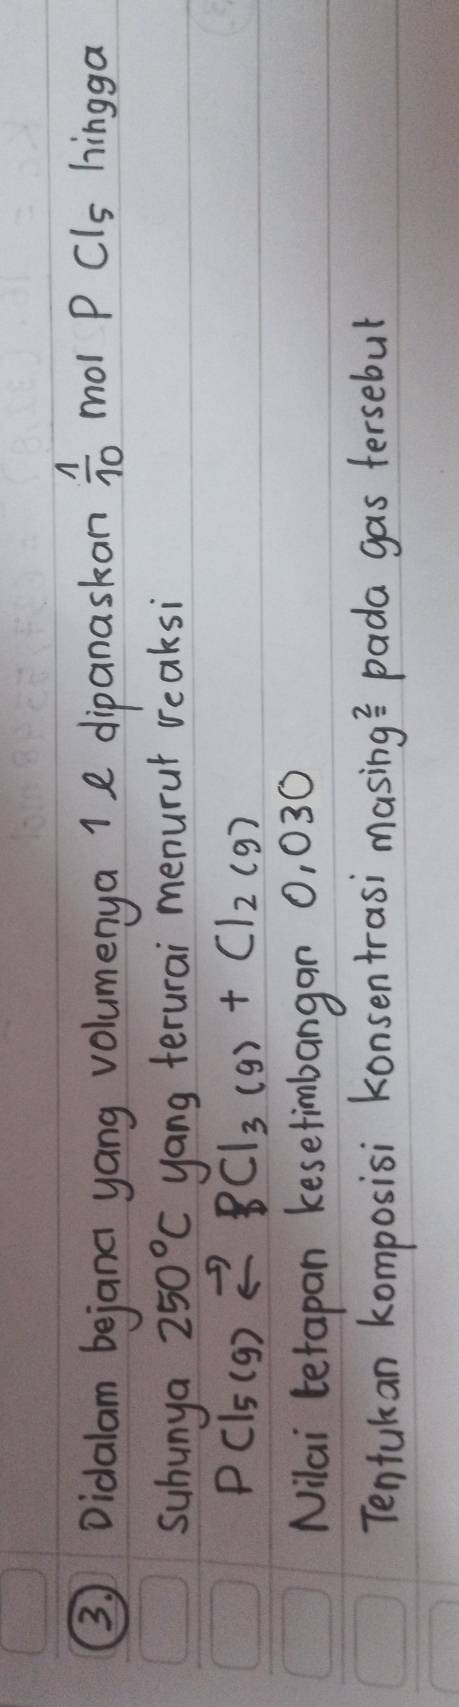 3. Didalam bejana yang volumenya 1 l dipanaskan 1/10 mol PCl5 hingga
suhunya 250°C yang terurai menurut reaksi
PCl5 (g) ⇄ PCl3 (g) + Cl2 (g)
Nilai tetapan kesetimbangan 0,030
Tentukan komposisi konsentrasi masing² pada gas tersebut